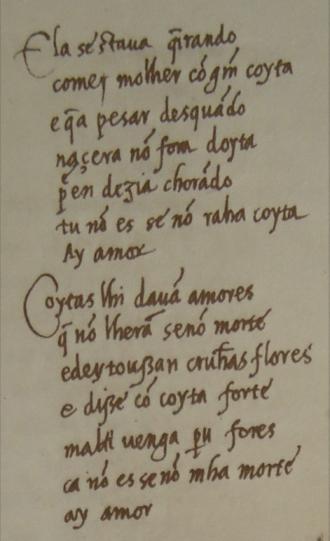 Ela sestaua q̃irando
comeɣ molher cõ gm̃ coyta
e q̃a pesar desquãdo
naçera nõ fora doyta
p̃en dezia chorãdo
tu nõ es se nõ raha coyta
Ay amor
Coytas lhi dauã amores
q̃ nõ lherã senõ morte
edeytoussan cruhas flores
e disse cõ coyta forte
mal ti uenga pu fores
ca nõ es se nõ mha morte
ay amor